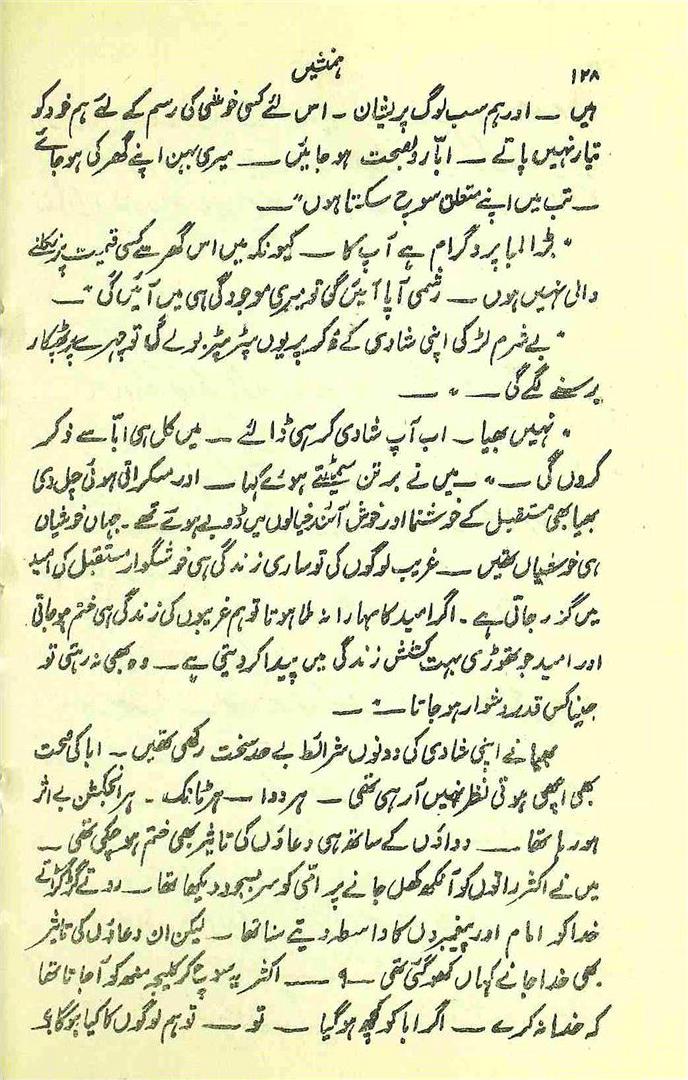 ۱۲۸ ہمنشیں
ہیں ــ اور ہم سب لوگ پریشان ـ اس لئے کسی خوشی کی رسم کے لئے ہم خود کو
تیار نہیں پاتے ــ ابّا رو بصحت ہو جائیں ــ میری بہن اپنے گھر کی ہو جائے
ــ تب میں اپنے متعلق سوچ سکتا ہوں"ــ
"بڑا لمبا پروگرام ہے آپ کا ــ کیونکہ میں اس گھر سے کسی قیمت پر نکلنے
والی نہیں ہوں ــ رشمی آپا آئیں گی تو میری موجودگی ہی میں آئیں گی"ــ
"بے شرم لڑکی اپنی شادی کے ذکر پر یوں پٹر پٹر بولے گی تو چہرے پر پھٹکار
برسنے لگے گی ــ" ــ
"نہیں بھیا ــ اب آپ شادی کر ہی ڈالئے ــ میں کل ہی ابّا سے ذکر
کروں گی ــ" ــ میں نے برتن سمیٹتے ہوئے کہا ــ اور مسکراتی ہوئی چل دی
بھیا بھی مستقبل کے خوشنما اور خوش آئند خیالوں میں ڈوبے ہوئے تھے ـ جہاں خوشیاں
ہی خوشیاں تھیں ــ غریب لوگوں کی تو ساری زندگی ہی خوشگوار مستقبل کی امید
میں گزر جاتی ہے ـ اگر امید کا سہارا نہ ملا ہوتا تو ہم غریبوں کی زندگی ہی ختم ہو جاتی
اور امید جو تھوڑی بہت کشش زندگی میں پیدا کر دیتی ہے ــ وہ بھی نہ رہتی تو
جینا کس قدر دشوار ہو جاتا ــ" ــ
بھیا نے اپنی شادی کی دونوں شرائط بے حد سخت رکھی تھیں ـ ابا کی صحت
بھی اچھی ہوتی نظر نہیں آ رہی تھی ــ ہر دوا ــ ہر ٹانک ـ ہر انجکشن بے اثر
ہو رہا تھا ــ دواؤں کے ساتھ ہی دعاؤں کی تاثیر بھی ختم ہو چکی تھی ــ
میں نے اکثر راتوں کو آنکھ کھل جانے پر امّی کو سر بسجود دیکھا تھا ــ روتے گڑگڑاتے
خدا کو امام اور پیغمبروں کا واسطہ دیتے سنا تھا ــ لیکن ان دعاؤں کی تاثیر
بھی خدا جانے کہاں کھو گئی تھی ــ؟ ــ اکثر یہ سوچ کر کلیجہ منھ کو آ جاتا تھا
کہ خدا نہ کرے ــ اگر ابا کو کچھ ہو گیا ــ تو ــ تو ہم لوگوں کا کیا ہوگا؟